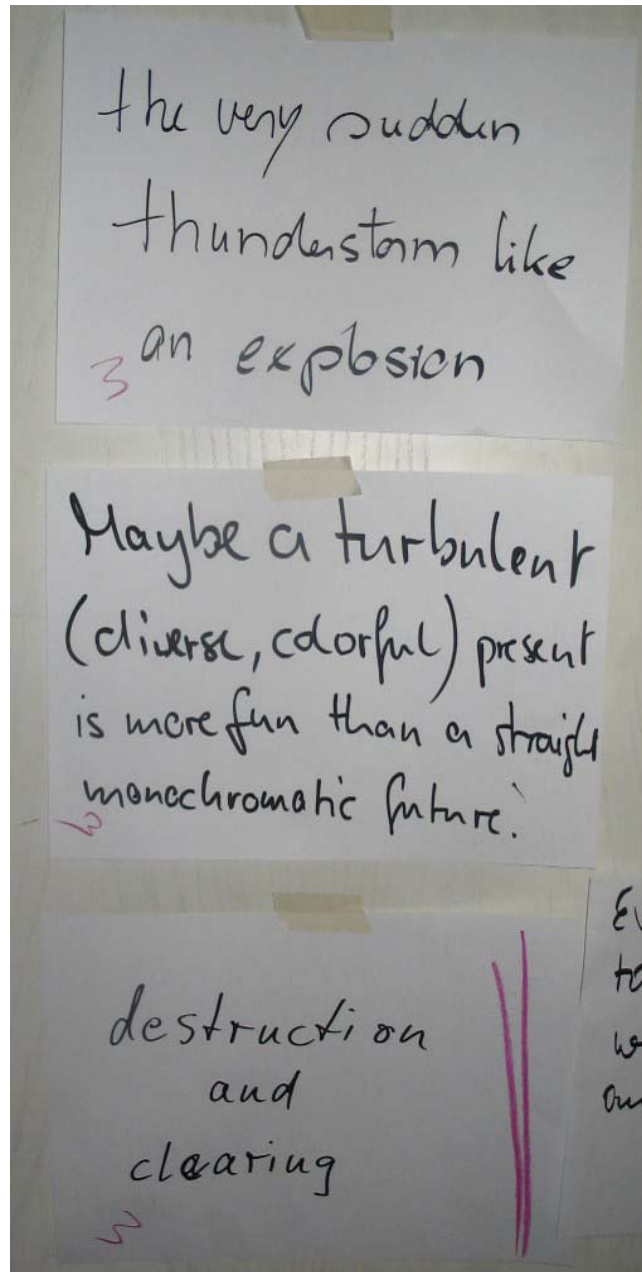 the very sudden
thunderstorm like
an explosion
3
Maybe a turbulent
(diverse, colorful) present
is more fun than a straight
monochromatic future.
destruction
and
clearing